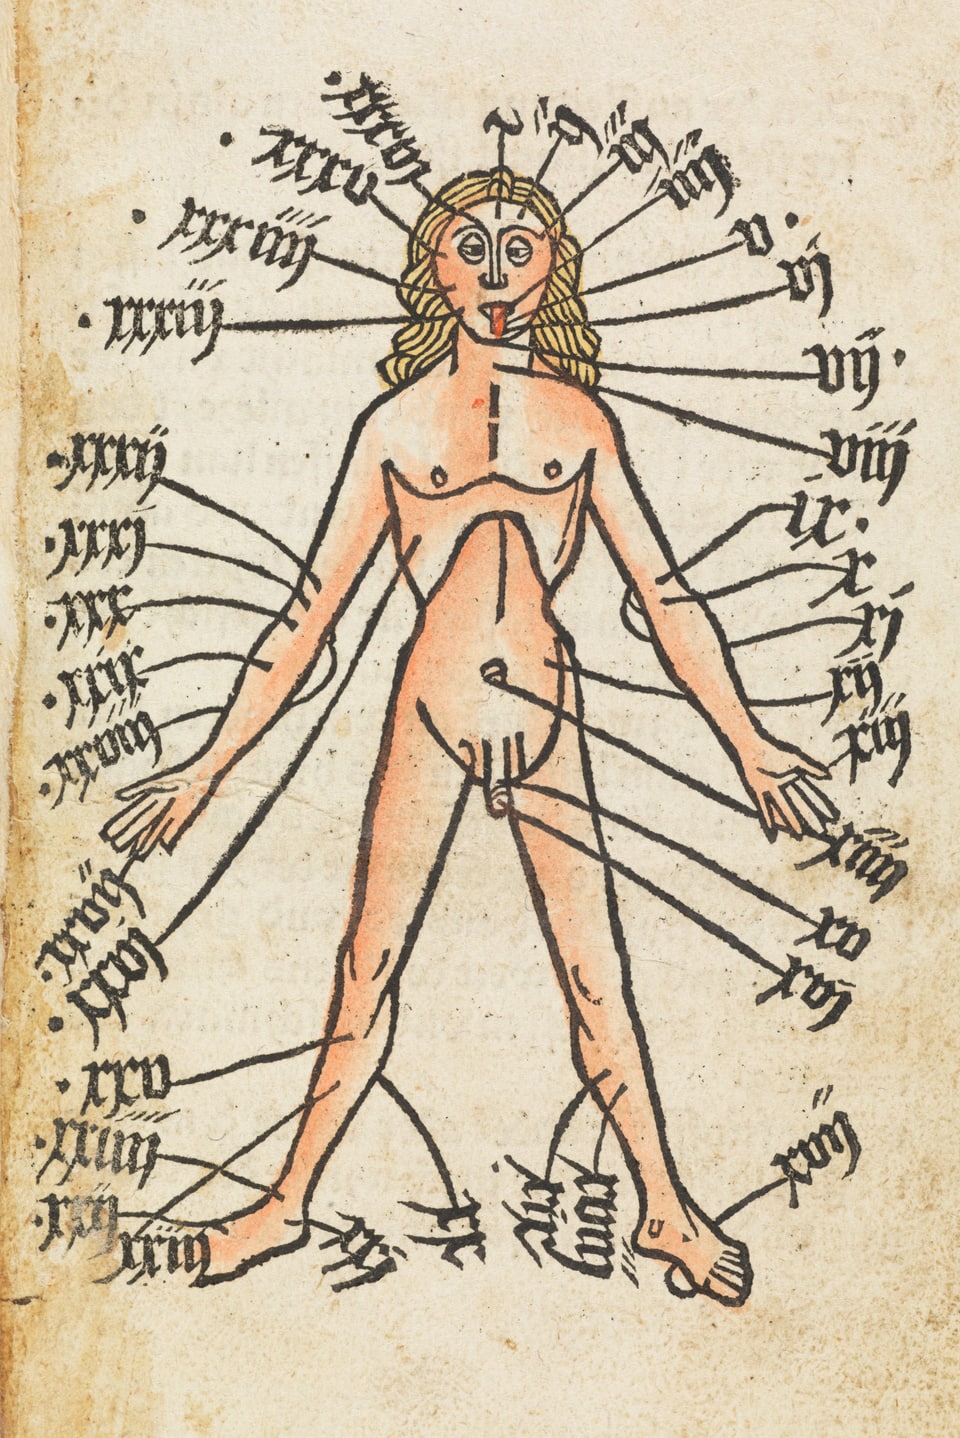 ij
iij
iiij
v.
vj
vij.
viij
ix.
x
xj
xij
xiij
xiiij
xv
xvj
xvij
xviij
xix
xx
xxj
xxij
xxiij
.xxiiij
.xxv
.xxvj
.xxvij
.xxviij
.xxix
.xxx
.xxxj
.xxxij
.xxxiij
.xxxiiij
.xxxv
.xxxvj